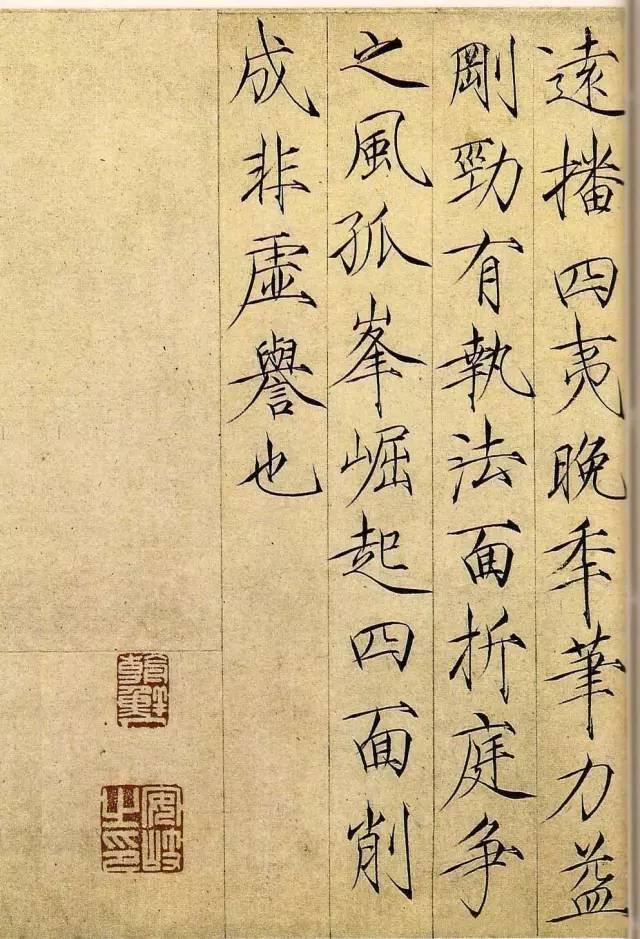 遠播四夷晚秊筆力益
剛勁有執法面折庭爭
之風孤峯崛起四面削
成非虛譽也
安岐之印